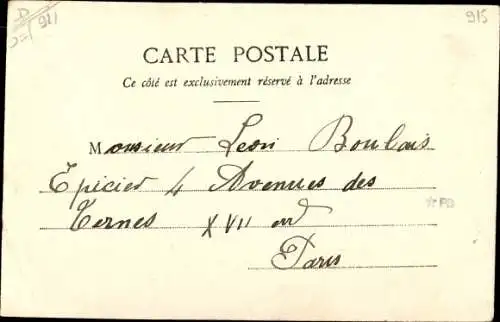 D 921
915
CARTE POSTALE
Ce côté est exclusivement réservé à l'adresse
Monsieur Leon Boulais
Epicier 4 Avenues des
Ternes XVII err
Paris